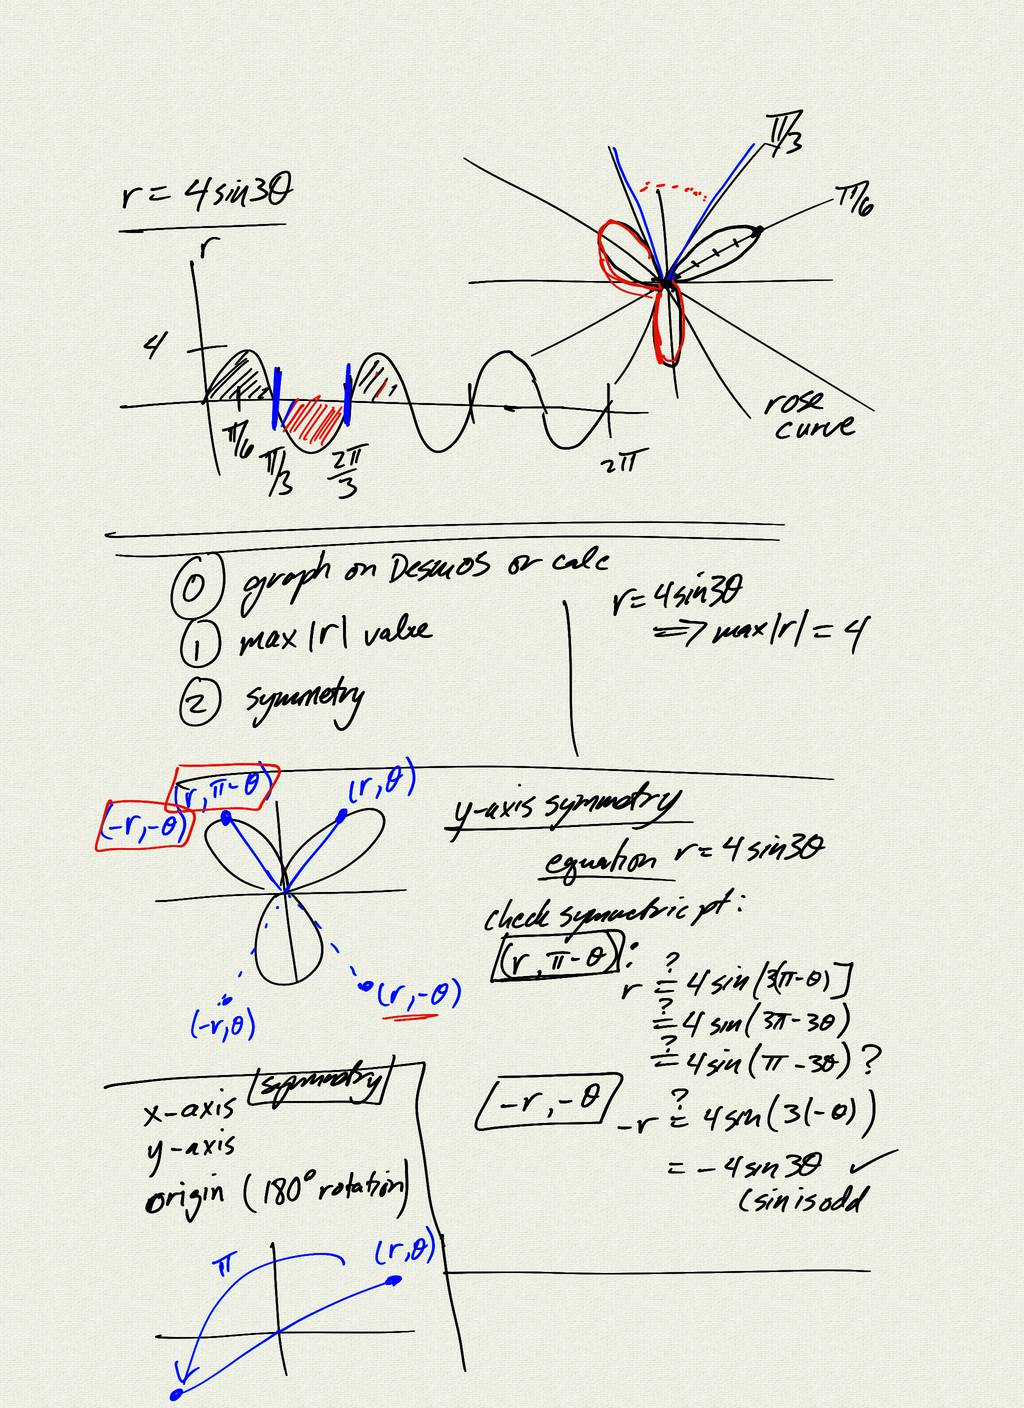 r = 4 sin3θ
r
4
π/6
π/3
2π/3
2π
π/3
π/6
rose
curve
0 graph on Desmos or calc
1 max |r| value
2 symmetry
r = 4 sin3θ
⟹ max |r| = 4
(r, π-θ)
(-r, -θ)
(r, θ)
(r, -θ)
(-r, θ)
y-axis symmetry
equation r = 4 sin3θ
check symmetric pt:
(r, π-θ):
r ≟ 4 sin[3(π-θ)]
≟ 4 sin(3π-3θ)
≟ 4 sin(π-3θ)?
-r, -θ
-r ≟ 4 sin(3(-θ))
= -4 sin3θ ✓
(sin is odd
symmetry
x-axis
y-axis
origin (180° rotation)
π
(r, θ)